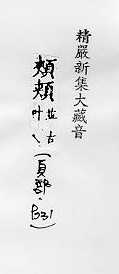 精嚴新集大藏音
頬頰並古叶〵(頁部·B31)